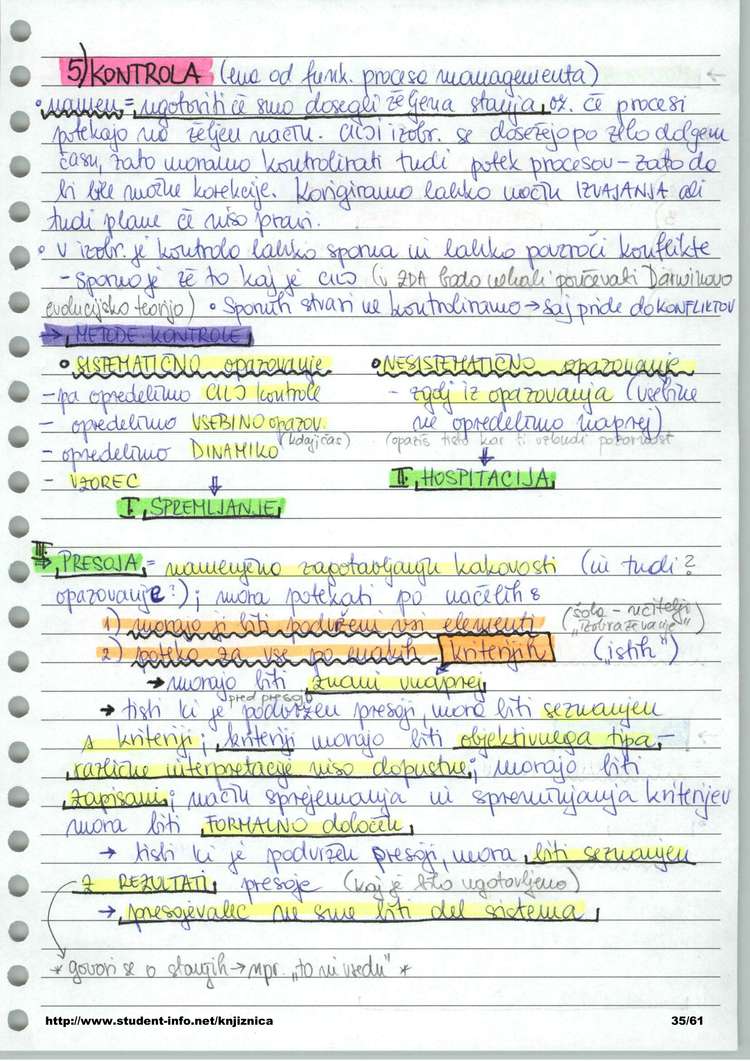 5) KONTROLA (ena od funk. procesa managementa)
• namen = ugotoviti če smo dosegli željena stanja, oz. če procesi
potekajo na željen način. Cilji izobr. se dosežejo po zelo dolgem
času, zato moramo kontrolirati tudi potek procesov – zato da
bi bile možne korekcije. Korigiramo lahko način IZVAJANJA ali
tudi plane če niso pravi.
• v izobr. je kontrola lahko sporna in lahko povzroči konflikte
- sporno je že to kaj je CILJ (v ZDA bodo nehali poučevati Darwinovo
evolucijsko teorijo) • Spornih stvari ne kontroliramo → saj pride do KONFLIKTOV
→ METODE KONTROLE
• SISTEMATIČNO opazovanje • NESISTEMATIČNO opazovanje
- pa opredelimo CILJ kontrole - zgolj iz opazovanja (vsebine
- opredelimo VSEBINO opazov. ne opredelimo naprej)
- opredelimo DINAMIKO (kdaj, čas) (opaziš tisto kar ti vzbudi pozornost
- VZOREC ⇓ ⇓ II. HOSPITACIJA
I. SPREMLJANJE
III. → PRESOJA = namenjeno zagotavljanju kakovosti (in tudi?
opazovanje?); mora potekati po načelih:
1) morajo ji biti podvrženi vsi elementi (šola - učitelji „izobraževanje")
2) poteka za vse po enakih kriterijih („istih")
→ morajo biti znani vnaprej
→ tisti ki je pred presojo podvržen presoji, mora biti seznanjen
s kriteriji; kriteriji morajo biti objektivnega tipa -
različne interpretacije niso dopustne; morajo biti
zapisani; način sprejemanja in spreminjanja kriterijev
mora biti FORMALNO določen
→ tisti ki je podvržen presoji, mora biti seznanjen
Z REZULTATI presoje (kaj je bilo ugotovljeno)
→ presojevalec ne sme biti del sistema
* govori se o stanjih → npr. „to ni vsedu" *
http://www.student-info.net/knjiznica 35/61